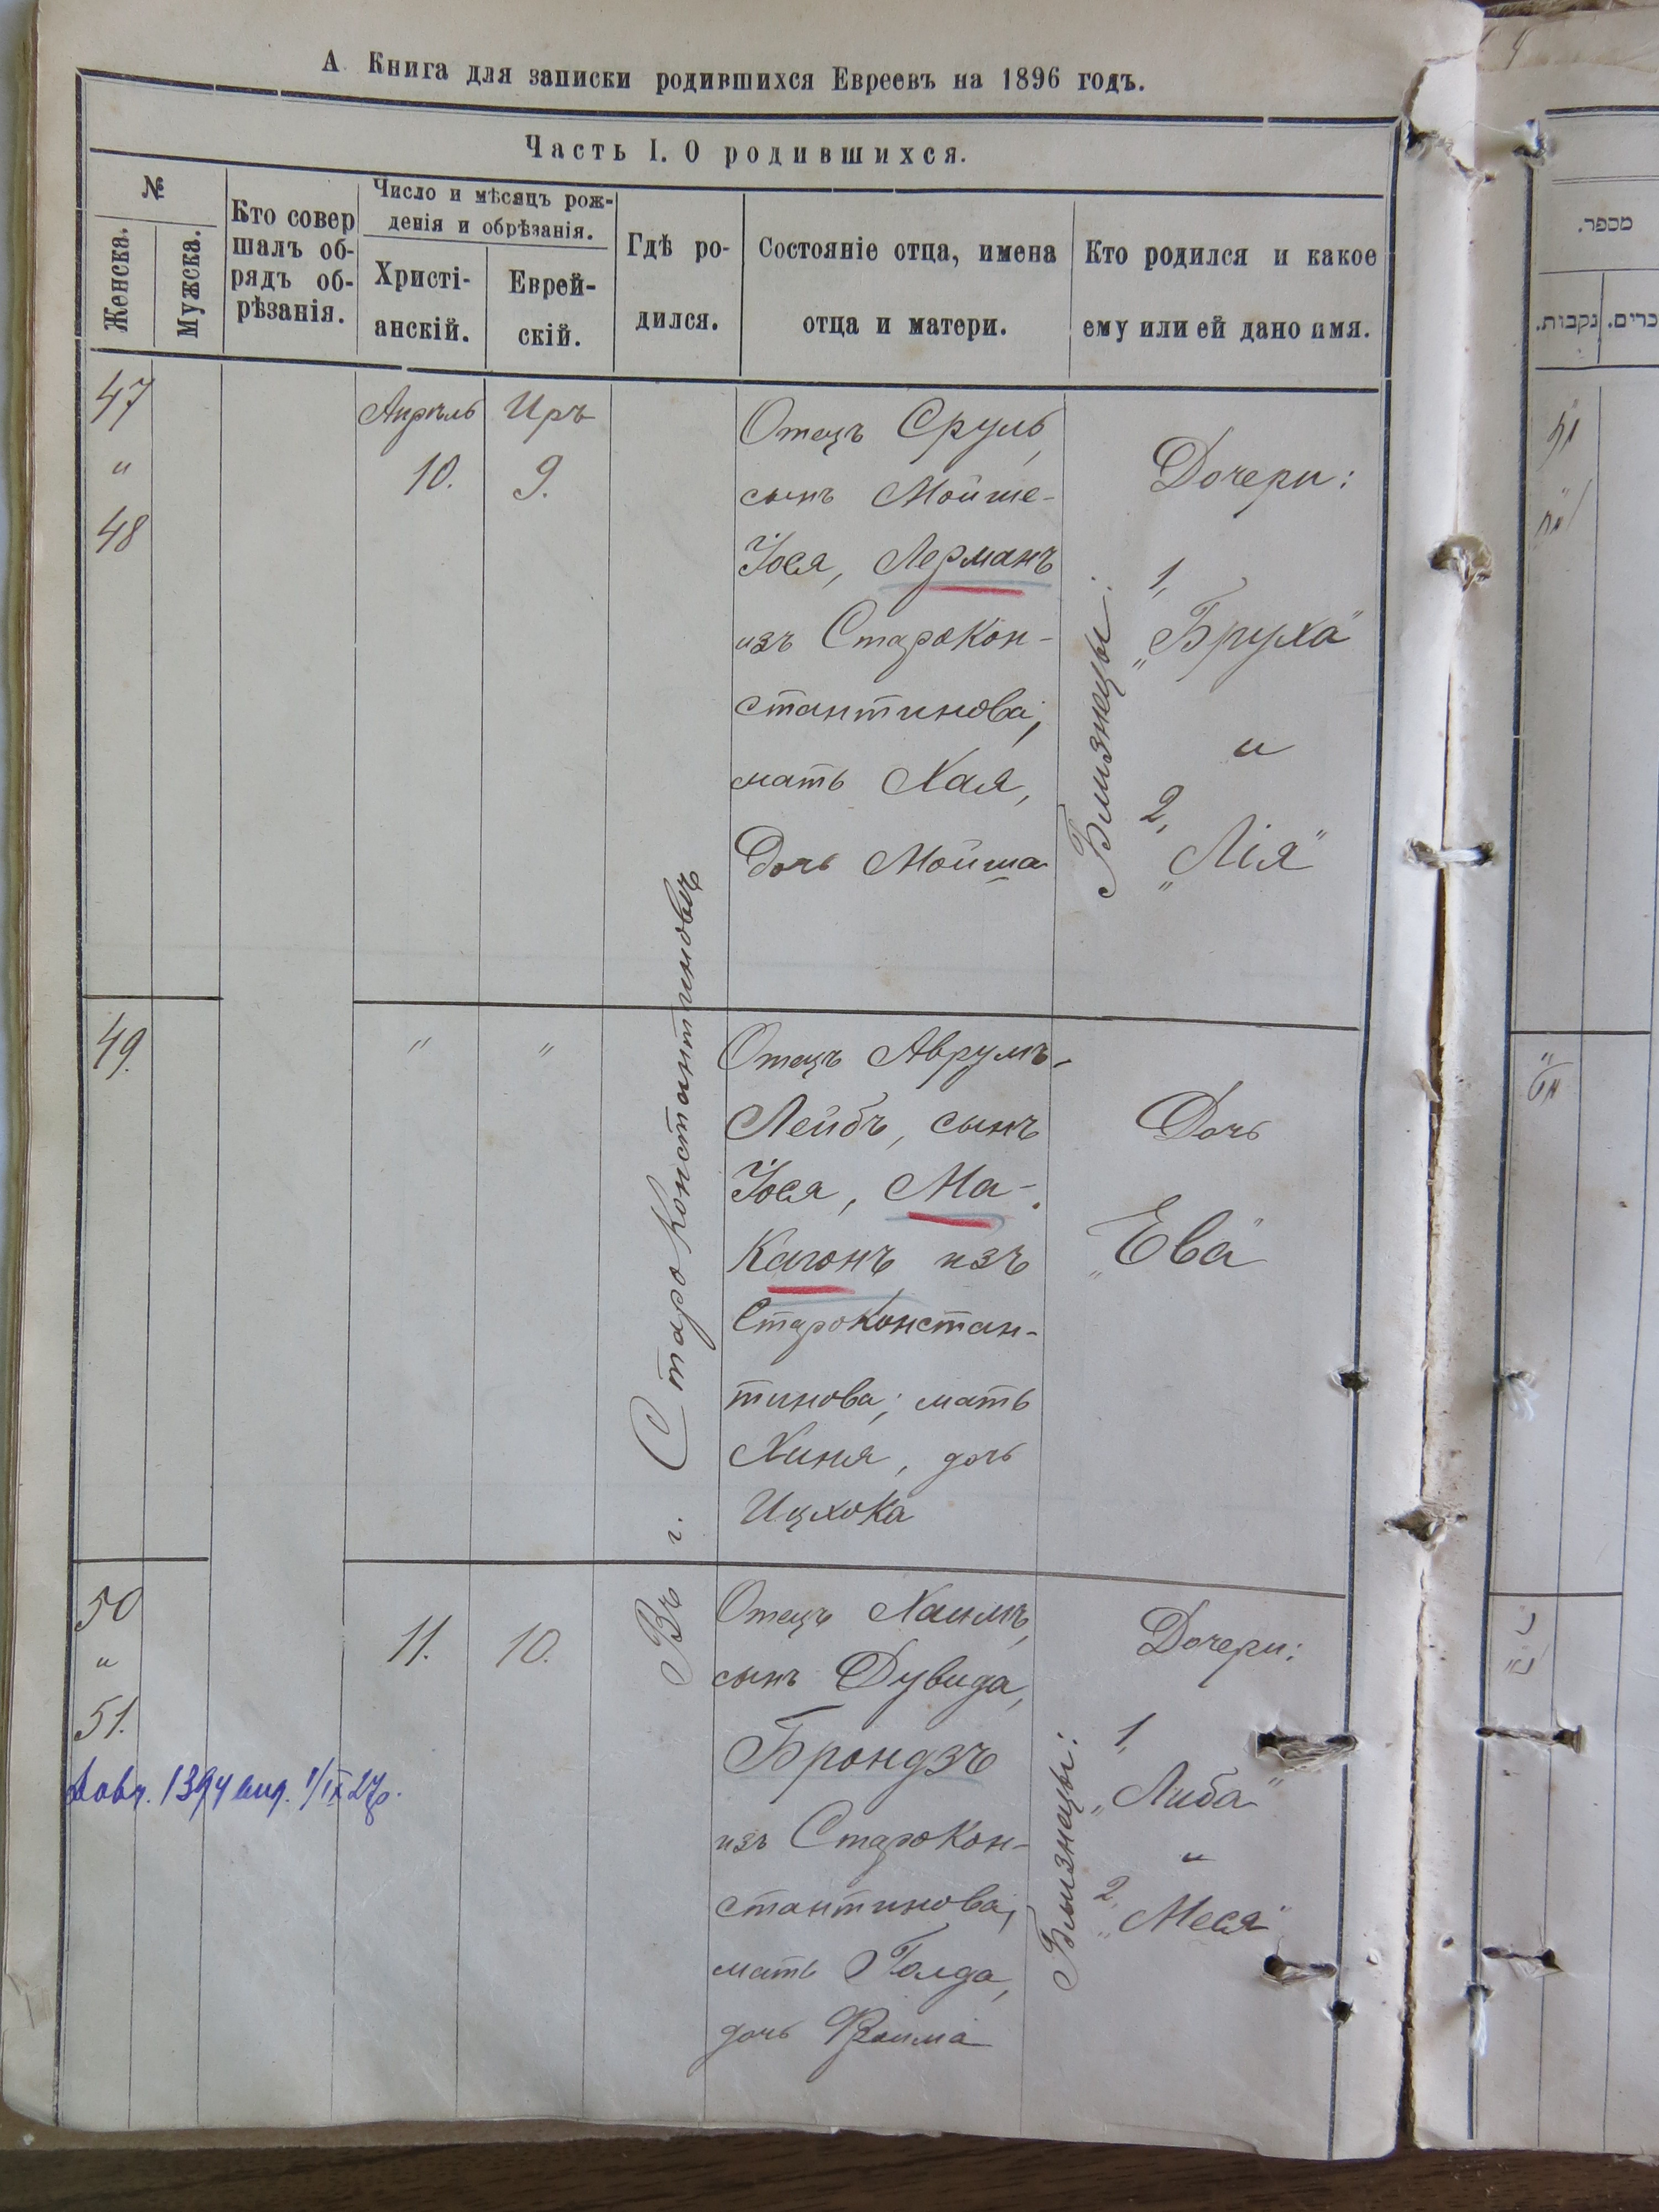 А Книга для записки родившихся Евреевъ на 1896 годъ.
Часть I. О родившихся.
№
Женска.
Мужска.
Кто совер
шалъ об-
рядъ об-
рѣзанія.
Число и мѣсяцъ рож-
денія и обрѣзанія.
Христі-
анскій.
Еврей-
скій.
Гдѣ ро-
дился.
Состояніе отца, имена
отца и матери.
Кто родился и какое
ему или ей дано имя.
47
"
48
Апрѣль
10.
Иръ
9.
Въ г. Староконстантиновѣ
Отецъ Сруль,
сынъ Мойше-
Іося, Лерманъ
изъ Старокон-
стантинова;
мать Хая,
дочь Мойша
Близнецы:
Дочери:
1,
„Бруха"
и
2,
„Лія"
49.
"
"
Отецъ Аврумъ-
Лейбъ, сынъ
Іося, Ма-
Кагонъ изъ
Староконстан-
тинова; мать
Хиня, дочь
Ицхока
Дочь
„Ева"
50
"
51.
11.
10.
Отецъ Хаимъ,
сынъ Дувида,
Брондзъ
изъ Старокон-
стантинова;
мать Голда,
дочь Фроима
Близнецы:
Дочери:
1,
„Либа"
и
2,
„Меся"
1394
מספר.
נקבות.
זכרים.